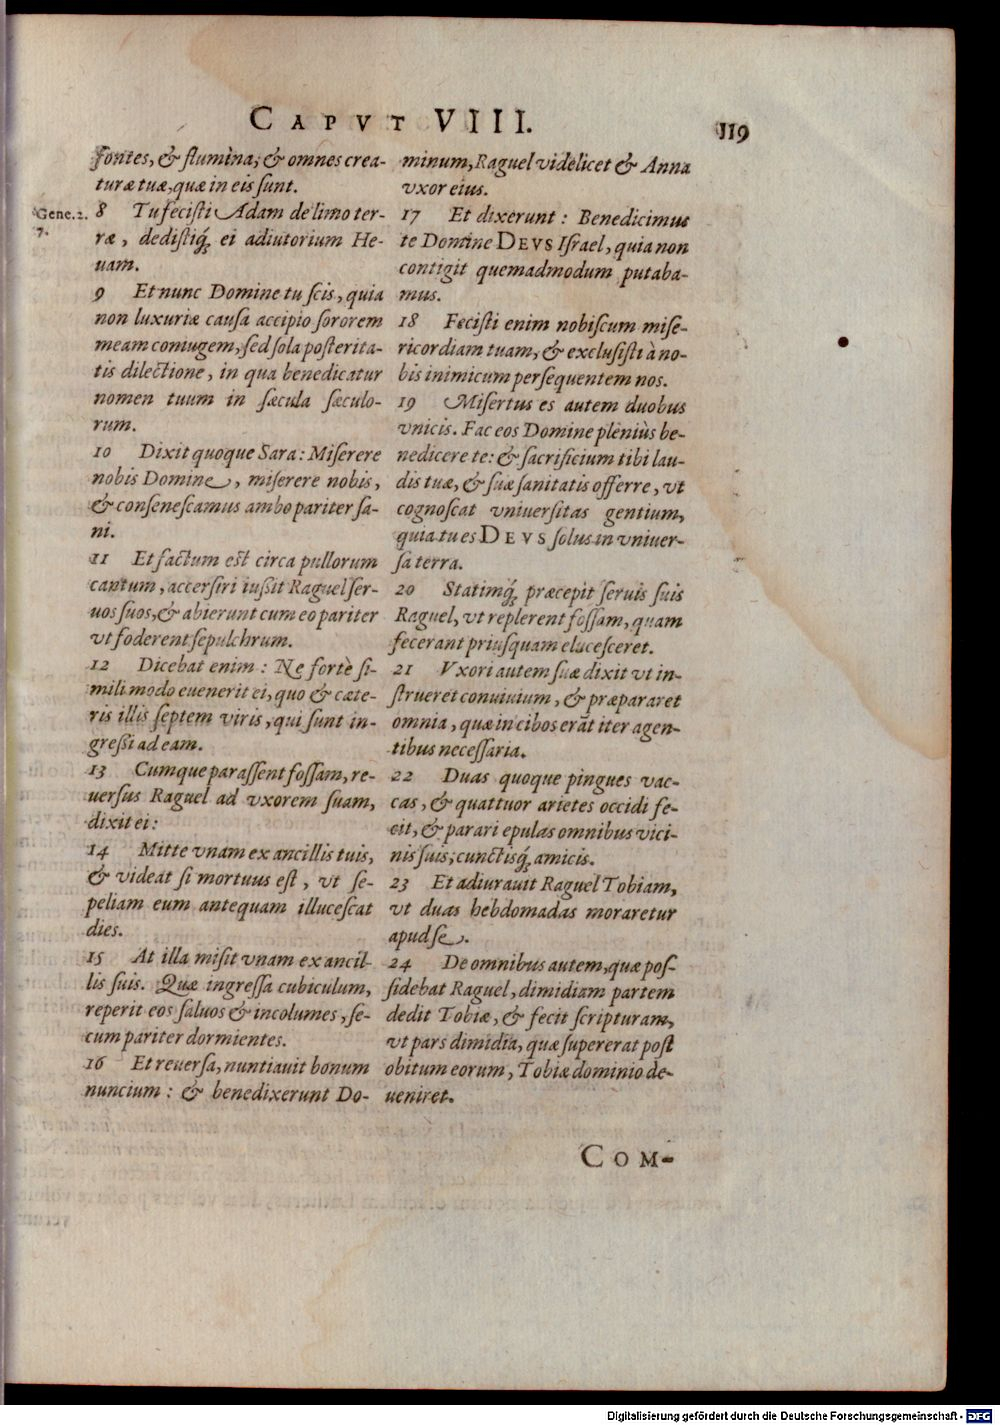 CAPVT VIII.
119
fontes, & flumina, & omnes crea-
turæ tuæ, quæ in eis sunt.
Gene. 2.
7.
8 Tu fecisti Adam de limo ter-
ræ, dedistiq́; ei adiutorium He-
uam.
9 Et nunc Domine tu scis, quia
non luxuriæ causa accipio sororem
meam coniugem, sed sola posterita-
tis dilectione, in qua benedicatur
nomen tuum in sæcula sæculo-
rum.
10 Dixit quoque Sara: Miserere
nobis Domine, miserere nobis,
& consenescamus ambo pariter sa-
ni.
11 Et factum est circa pullorum
cantum, accersiri iußit Raguel ser-
uos suos, & abierunt cum eo pariter
vt foderent sepulchrum.
12 Dicebat enim: Ne fortè si-
mili modo euenerit ei, quo & cæte-
ris illis septem viris, qui sunt in-
greßi ad eam.
13 Cumque parassent fossam, re-
uersus Raguel ad vxorem suam,
dixit ei:
14 Mitte vnam ex ancillis tuis,
& videat si mortuus est, vt se-
peliam eum antequam illucescat
dies.
15 At illa misit vnam ex ancil-
lis suis. Quæ ingressa cubiculum,
reperit eos saluos & incolumes, se-
cum pariter dormientes.
16 Et reuersa, nuntiauit bonum
nuncium: & benedixerunt Do-
minum, Raguel videlicet & Anna
vxor eius.
17 Et dixerunt: Benedicimus
te Domine DEVS Israel, quia non
contigit quemadmodum putaba-
mus.
18 Fecisti enim nobiscum mise-
ricordiam tuam, & exclusisti à no-
bis inimicum persequentem nos.
19 Misertus es autem duobus
vnicis. Fac eos Domine pleniùs be-
nedicere te: & sacrificium tibi lau-
dis tuæ, & suæ sanitatis offerre, vt
cognoscat vniuersitas gentium,
quia tu es DEVS solus in vniuer-
sa terra.
20 Statimq́; præcepit seruis suis
Raguel, vt replerent fossam, quam
fecerant priusquam elucesceret.
21 Vxori autem suæ dixit vt in-
strueret conuiuium, & præpararet
omnia, quæ in cibos erāt iter agen-
tibus necessaria.
22 Duas quoque pingues vac-
cas, & quattuor arietes occidi fe-
cit, & parari epulas omnibus vici-
nis suis, cunctisq́; amicis.
23 Et adiurauit Raguel Tobiam,
vt duas hebdomadas moraretur
apud se.
24 De omnibus autem, quæ pos-
sidebat Raguel, dimidiam partem
dedit Tobiæ, & fecit scripturam,
vt pars dimidia, quæ supererat post
obitum eorum, Tobiæ dominio de-
ueniret.
COM-
Digitalisierung gefördert durch die Deutsche Forschungsgemeinschaft - DFG